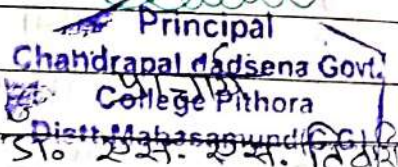 Principal
Chandrapal dadsena Govt.
प्राचार्य
College Pithora
Distt. Mahasamund (C.G.)
डॉ. एस. एस. तिवारी